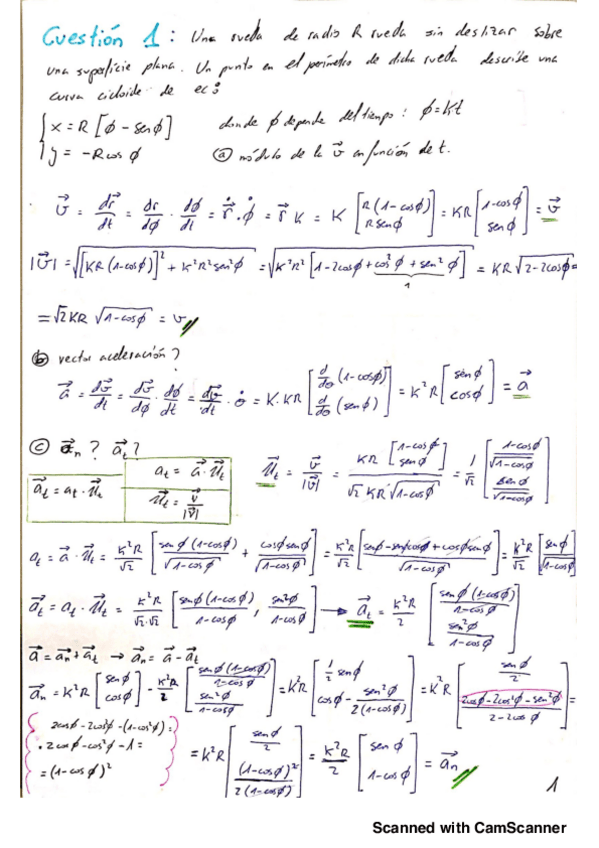 Cuestión 1: Una rueda de radio R rueda sin deslizar sobre
una superficie plana. Un punto en el perímetro de dicha rueda describe una
curva cicloide de ec:
{ x = R [ϕ - senϕ]   donde ϕ depende del tiempo: ϕ = Kt
{ y = -R cos ϕ   ⓐ módulo de la v⃗ en función de t.
v⃗ = dr⃗/dt = dr⃗/dϕ · dϕ/dt = r⃗̇ · ϕ̇ = r⃗ K = K [R(1-cosϕ) ; R senϕ] = KR [1-cosϕ ; senϕ] = v⃗
|v⃗| = √([KR(1-cosϕ)]² + K²R² sen²ϕ) = √(K²R² [1-2cosϕ + cos²ϕ + sen²ϕ]) = KR √(2-2cosϕ) =
1
= √2 KR √(1-cosϕ) = v
ⓑ vector aceleración?
a⃗ = dv⃗/dt = dv⃗/dϕ · dϕ/dt = dv⃗/dt · ϕ̇ = K · KR [d/dθ (1-cosϕ) ; d/dθ (senϕ)] = K²R [senϕ ; cosϕ] = a⃗
ⓒ a⃗n? a⃗t?
a⃗t = at · u⃗t   at = a⃗ · u⃗t   u⃗t = v⃗/|v⃗|
u⃗t = v⃗/|v⃗| = KR [1-cosϕ ; senϕ] / (√2 KR √(1-cosϕ)) = 1/√2 [(1-cosϕ)/√(1-cosϕ) ; senϕ/√(1-cosϕ)]
at = a⃗ · u⃗t = K²R/√2 [senϕ(1-cosϕ)/√(1-cosϕ) + cosϕ senϕ/√(1-cosϕ)] = K²R/√2 [(senϕ - senϕcosϕ + cosϕ senϕ)/√(1-cosϕ)] = K²R/√2 [senϕ/√(1-cosϕ)]
a⃗t = at · u⃗t = K²R/(√2·√2) [senϕ(1-cosϕ)/(1-cosϕ) , sen²ϕ/(1-cosϕ)] → a⃗t = K²R/2 [senϕ(1-cosϕ)/(1-cosϕ) ; sen²ϕ/(1-cosϕ)]
a⃗ = a⃗n + a⃗t → a⃗n = a⃗ - a⃗t
a⃗n = K²R [senϕ ; cosϕ] - K²R/2 [senϕ(1-cosϕ)/(1-cosϕ) ; sen²ϕ/(1-cosϕ)] = K²R [1/2 senϕ ; cosϕ - sen²ϕ/(2(1-cosϕ))] = K²R [senϕ/2 ; (2cosϕ - 2cos²ϕ - sen²ϕ)/(2-2cosϕ)] =
2cosϕ - 2cos²ϕ - (1-cos²ϕ) =
· 2cosϕ - cos²ϕ - 1 =
= (1-cosϕ)²
= K²R [senϕ/2 ; (1-cosϕ)²/(2(1-cosϕ))] = K²R/2 [senϕ ; 1-cosϕ] = a⃗n
1
Scanned with CamScanner